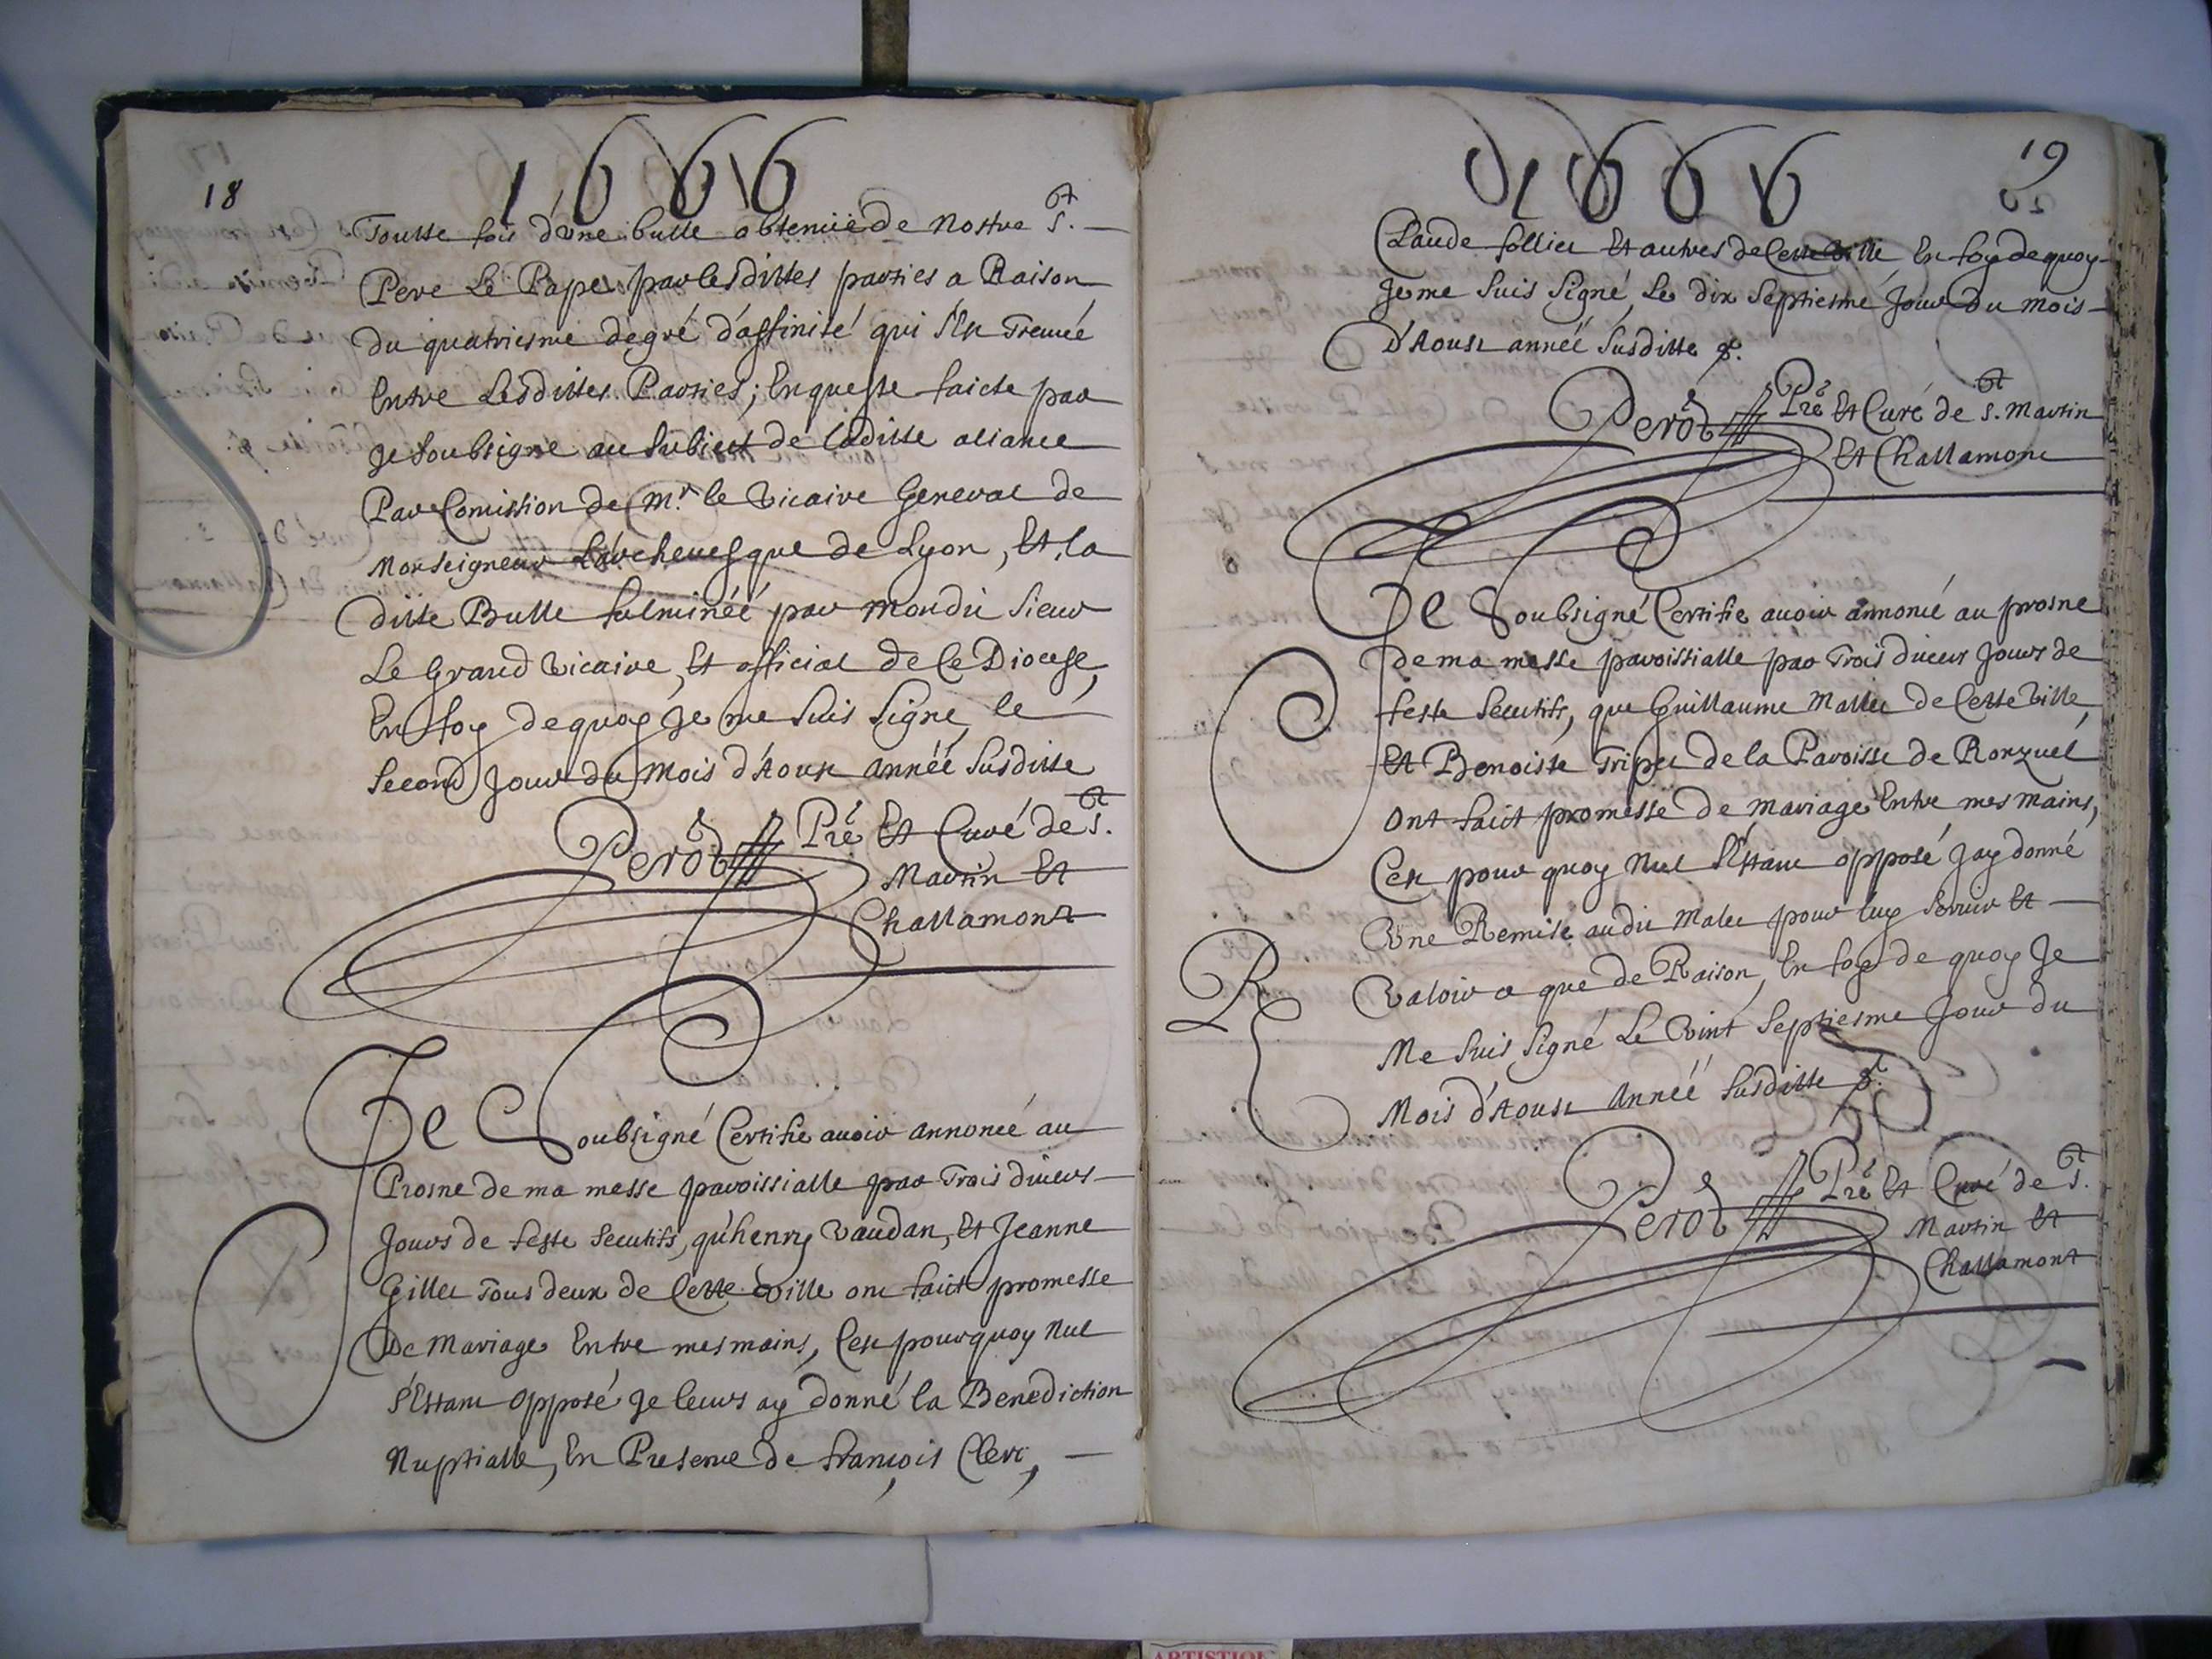 18
1666
Toutte fois d'vne bulle obtenüe de Nostre S.t
Pere Le Pape par lesdittes parties a Raison
du quatriesme degré d'affinité qui s'est treuvée
Entre Lesdittes Parties; Enqueste faicte par
Je soubsigne au subiect de laditte aliance
Par Comission de M.r le Vicaire General de
Monseigneur L'archevesque de Lyon, Et la
ditte Bulle fulminéé par mondit sieur
Le Grand Vicaire, Et official de Ce Diocese,
En foy de quoy Je me suis signé, le
second Jour du mois d'Aoust Annéé susditte
Perod Pre Et Curé de S.t
Martin Et
Challamont
Je Soubsigné Certifie auoir annoncé au
Prosne de ma messe paroissialle par Trois diuers
Jours de feste secutifs, qu'henry Vaudan, Et Jeanne
Gillet Tous deux de Cette Ville ont faict promesse
De Mariage Entre mes mains, Cest pourquoy Nul
s'Estant opposé Je leurs ay donné la Benediction
Nuptialle, En Presence de françois Clerc,
19
1666
Claude follier Et autres de Cette Ville En foy de quoy
Je me suis signé, Le dix septiesme Jour du mois
D'Aoust annéé susditte &.
Perod Pre Et Curé de S.t Martin
Et Challamont
Je Soubsigné Certifie auoir annoncé au prosne
de ma messe paroissialle par Trois diuers Jours de
feste secutifs, que Guillaume Mallet de Cette Ville,
Et Benoiste Tripet de la Paroisse de Ronzuel
Ont faict promesse de mariage Entre mes mains,
Cest pour quoy Nul s'Estant opposé Jay donné
Vne Remise audit Malet pour luy seruir Et
R
Valoir a que de Raison, En foy de quoy Je
Me suis signé Le Vint septiesme Jour du
Mois d'Aoust Annéé susditte &.
Perod Pre Et Curé de S.t
Martin Et
Challamont